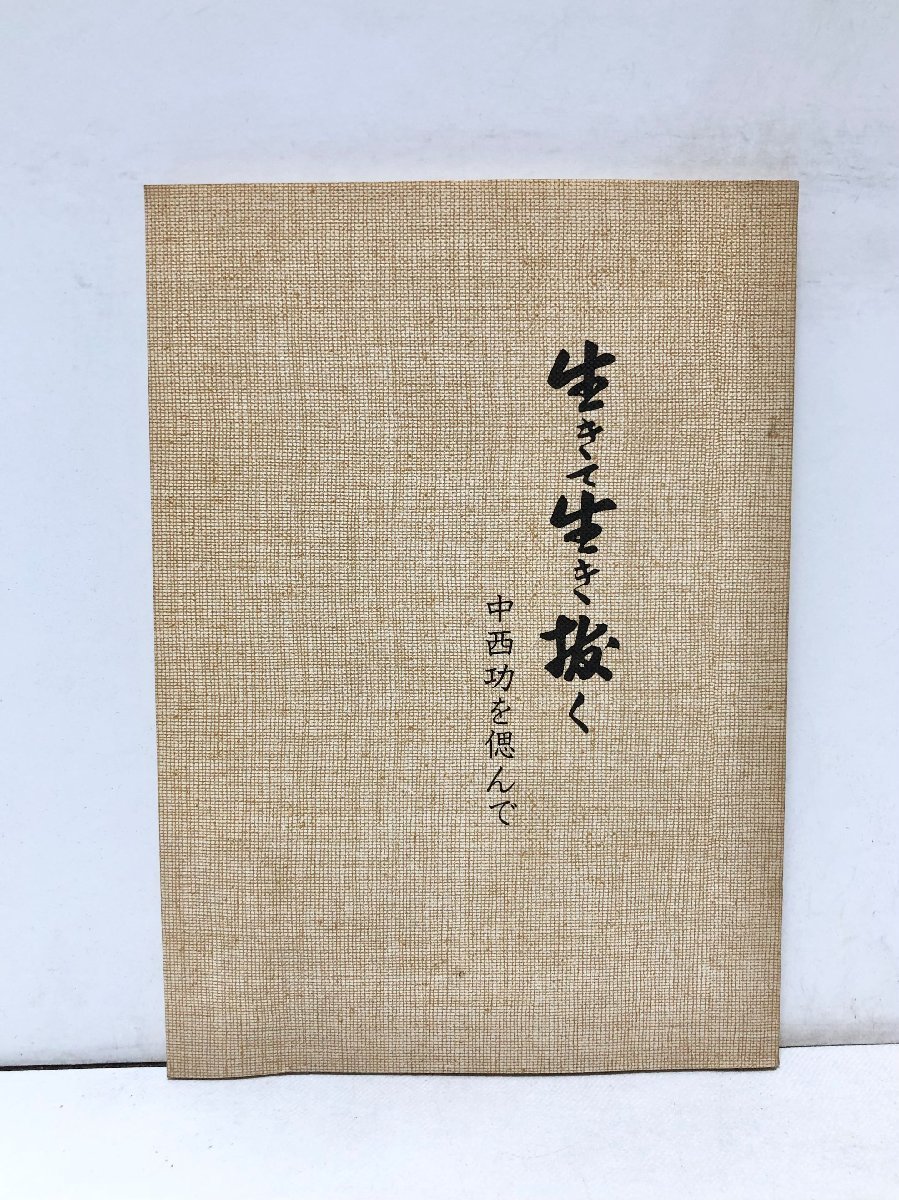 生きて生き抜く
中西功を偲んで